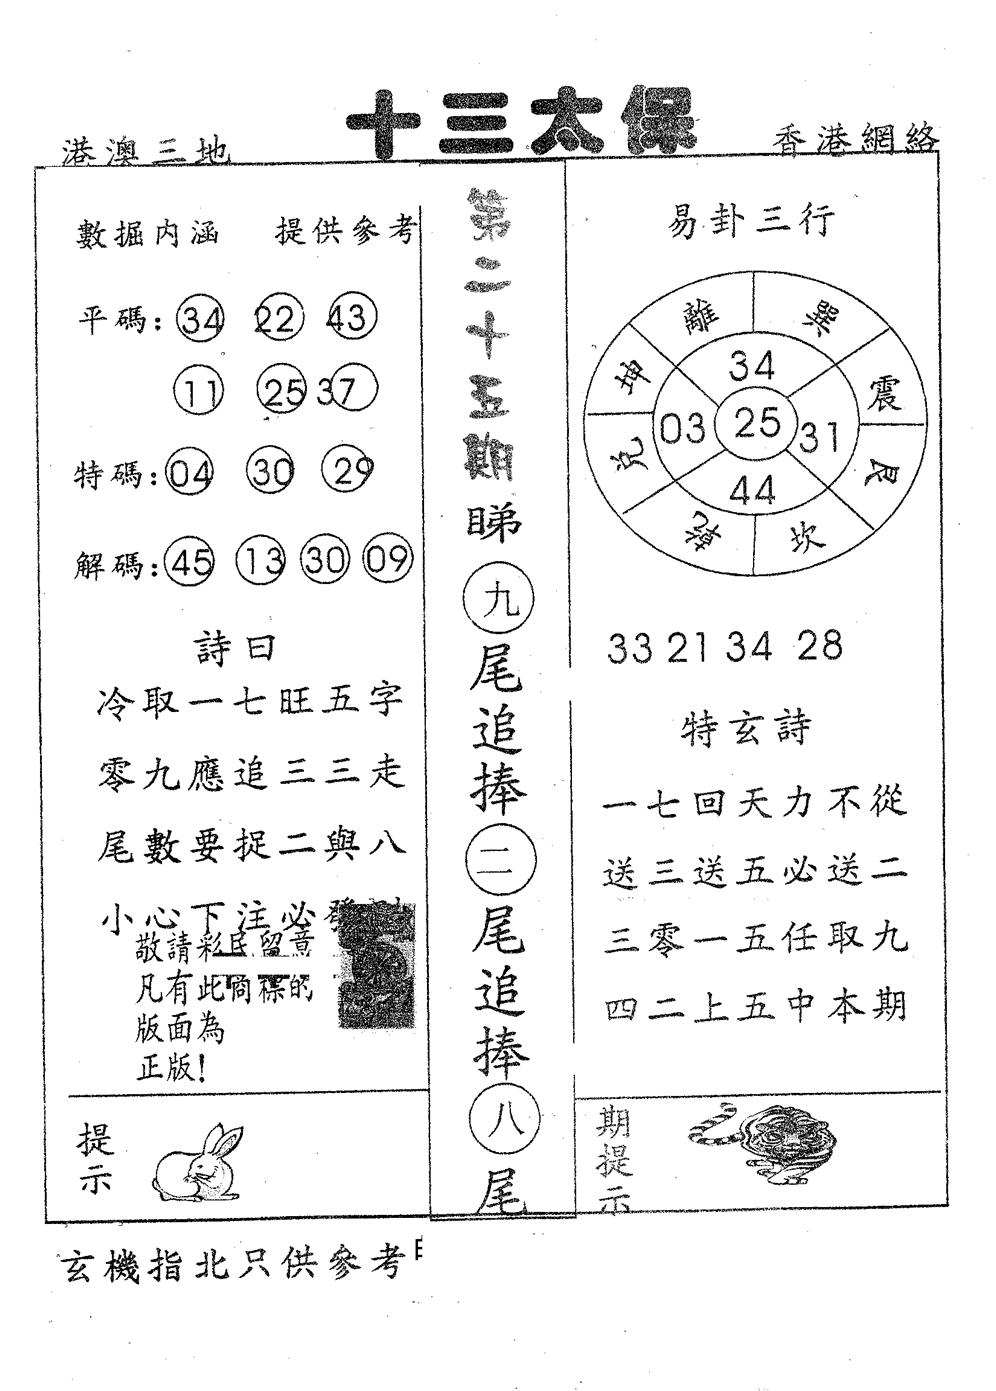 十三太保
港澳三地
香港網絡
數掘内涵 提供參考
平碼: 34 22 43
11 25 37
特碼: 04 30 29
解碼: 45 13 30 09
詩曰
冷取一七旺五字
零九應追三三走
尾數要捉二與八
小心下注必
敬請彩民留意
凡有此商標的
版面為
正版!
提示
第二十五期
睇九尾追捧二尾追捧八尾
易卦三行
離 巽
坤 震
兌 艮
乾 坎
34
03 25 31
44
33 21 34 28
特玄詩
一七回天力不從
送三送五必送二
三零一五任取九
四二上五中本期
期提示
玄機指北只供參考